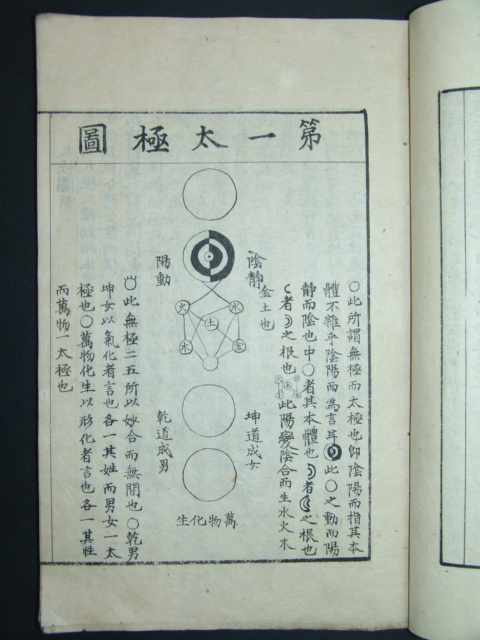 第一太極圖
○此所謂無極而太極也即陰陽而指其本
體不雜乎陰陽而爲言耳此○之動而陽
靜而陰也中○者其本體也者之根也
者之根也此陽變陰合而生水火木
金土也
陰靜
坤道成女
陽動
火
水
土
木
金
乾道成男
萬物化生
此無極二五所以妙合而無間也○乾男
坤女以氣化者言也各一其姓而男女一太
極也○萬物化生以形化者言也各一其性
而萬物一太極也